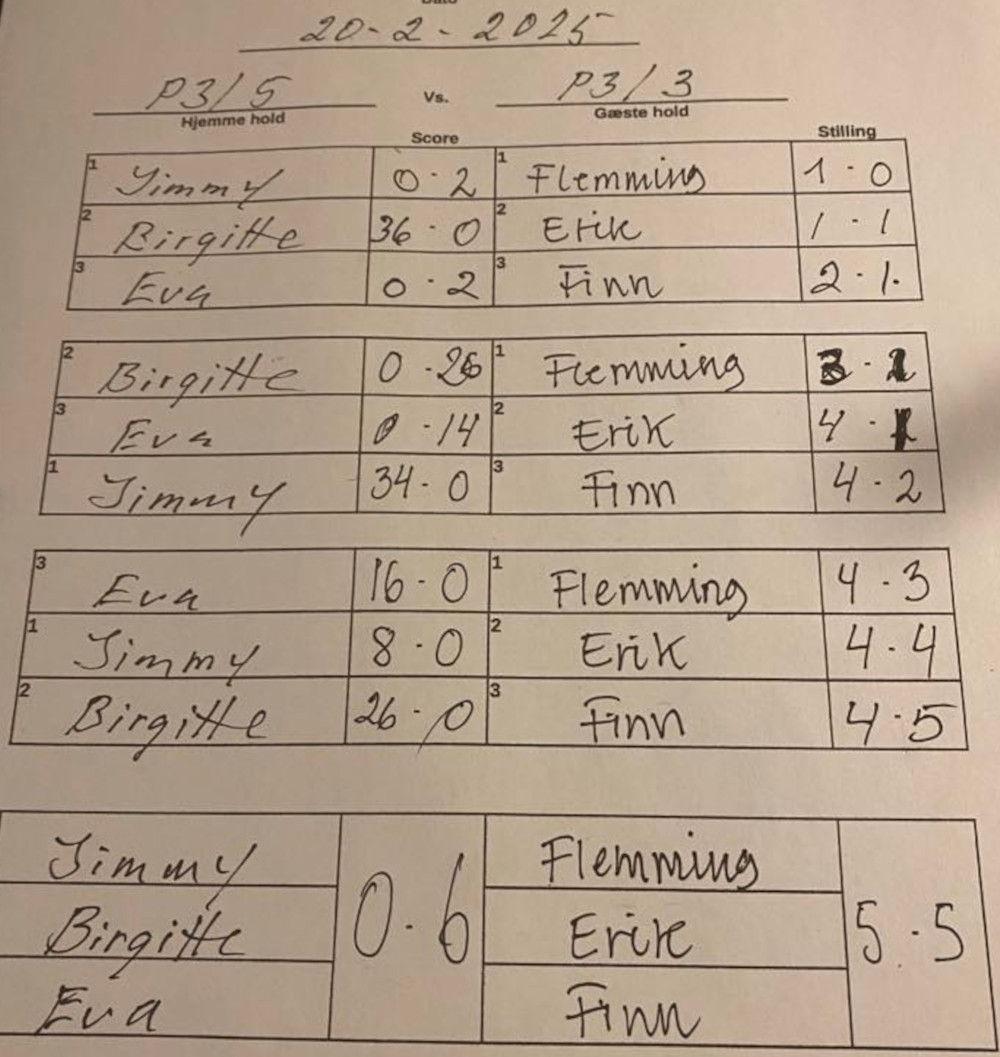 20-2-2025
P3/5 Vs. P3/3
Hjemme hold Gæste hold
Score Stilling
1 Jimmy 0-2 1 Flemming 1-0
2 Birgitte 36-0 2 Erik 1-1
3 Eva 0-2 3 Finn 2-1.
2 Birgitte 0-26 1 Flemming 3-1
3 Eva 0-14 2 Erik 4-1
1 Jimmy 34-0 3 Finn 4-2
3 Eva 16-0 1 Flemming 4-3
1 Jimmy 8-0 2 Erik 4-4
2 Birgitte 26-0 3 Finn 4-5
Jimmy Flemming
Birgitte 0-6 Erik 5-5
Eva Finn